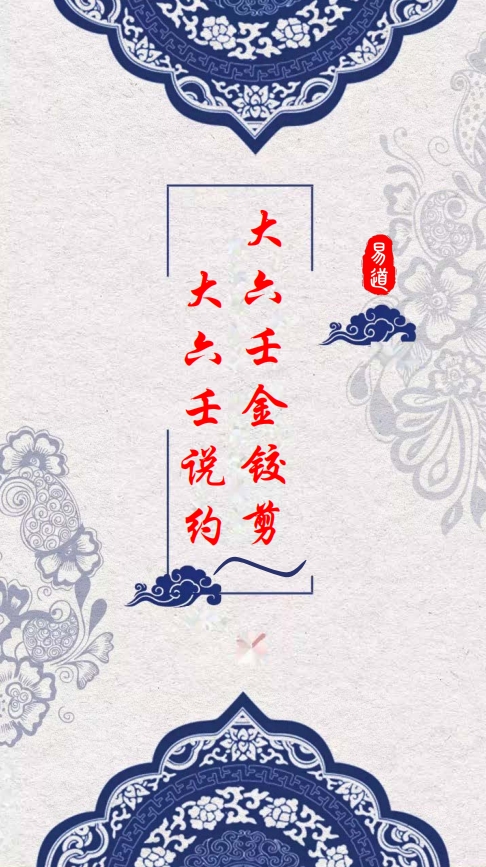 易道
大六壬金铰剪
大六壬说约